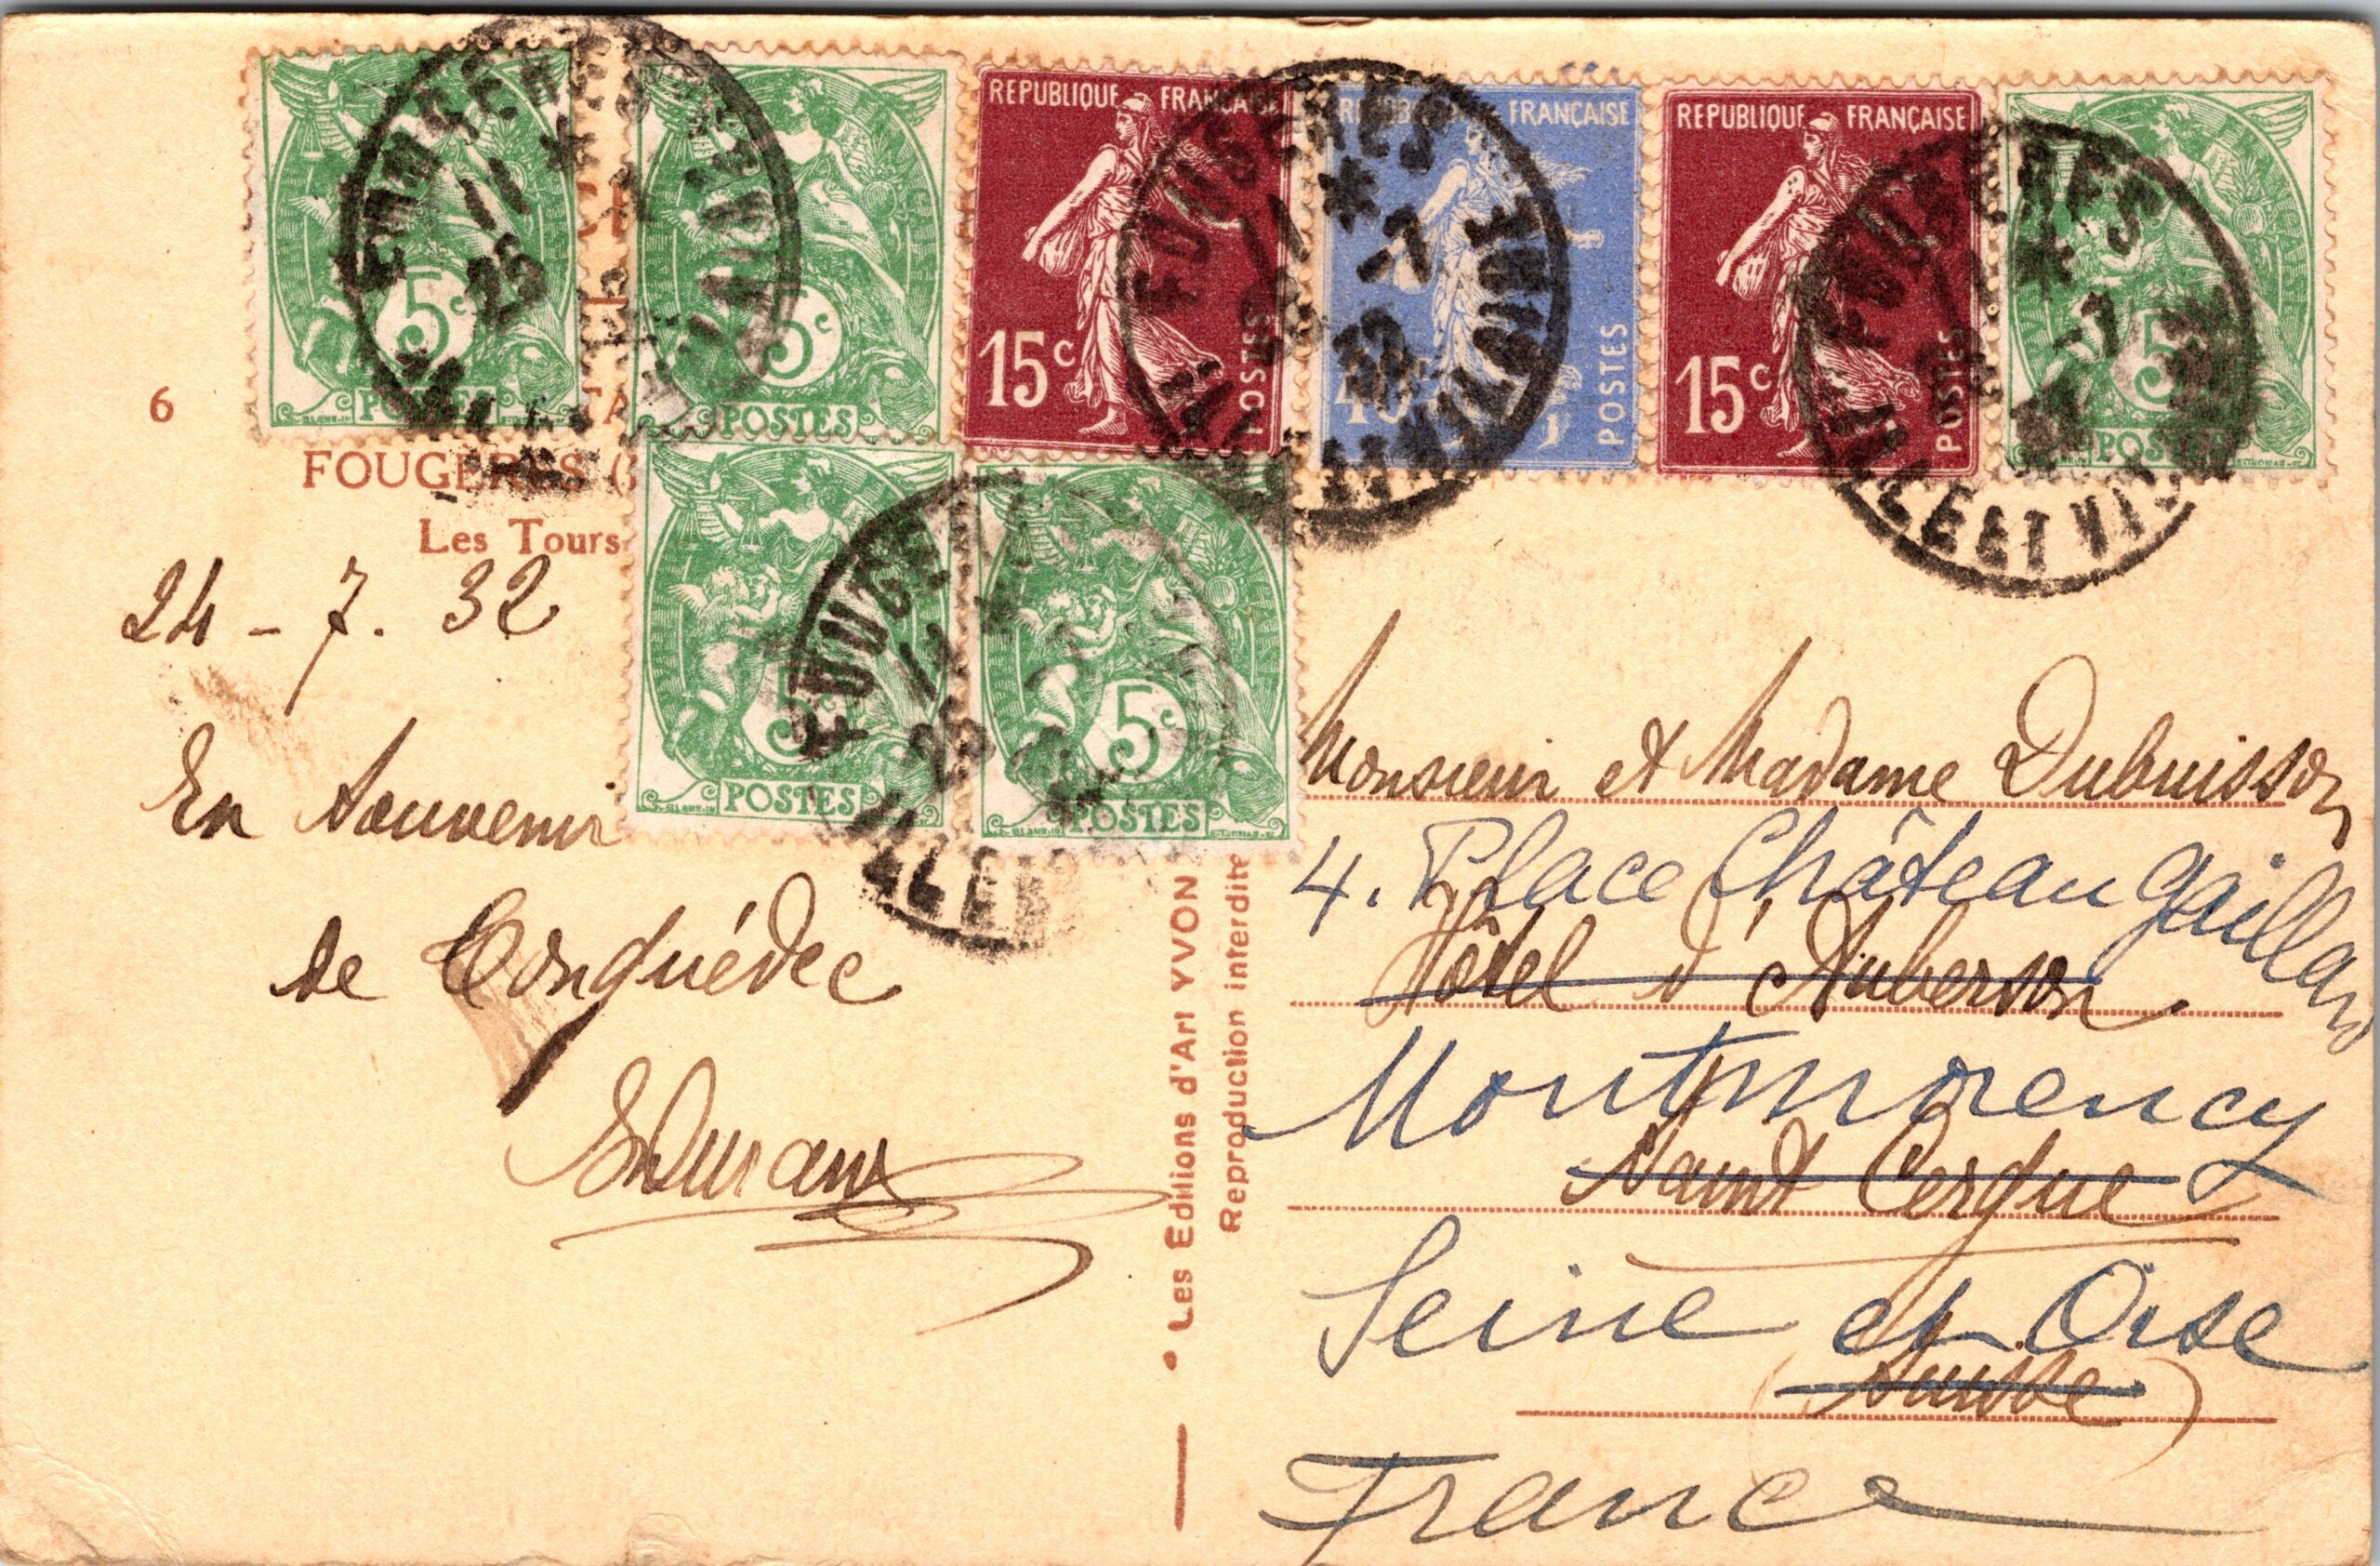 REPUBLIQUE FRANÇAISE
15c
POSTES
FRANÇAISE
40c
POSTES
REPUBLIQUE FRANÇAISE
15c
POSTES
5c
POSTES
5c
POSTES
5c
POSTES
5c
POSTES
5c
POSTES
FOUGERES
11
25
FOUGERES
-7
32
ILLE ET VILAINE
FOUGERES
-7
ILLE ET VILAINE
FOUGERES
ILLE
6
FOUGERES (
Les Tours
24 - 7. 32
En Souvenir
de Tonquédec
Monsieur et Madame Dubuisson
4. Place Château Gaillard
Hôtel d'Auberson
Montmorency
Saint Cergue
Seine et Oise
(Suisse)
France
• Les Editions d'Art YVON
Reproduction interdite